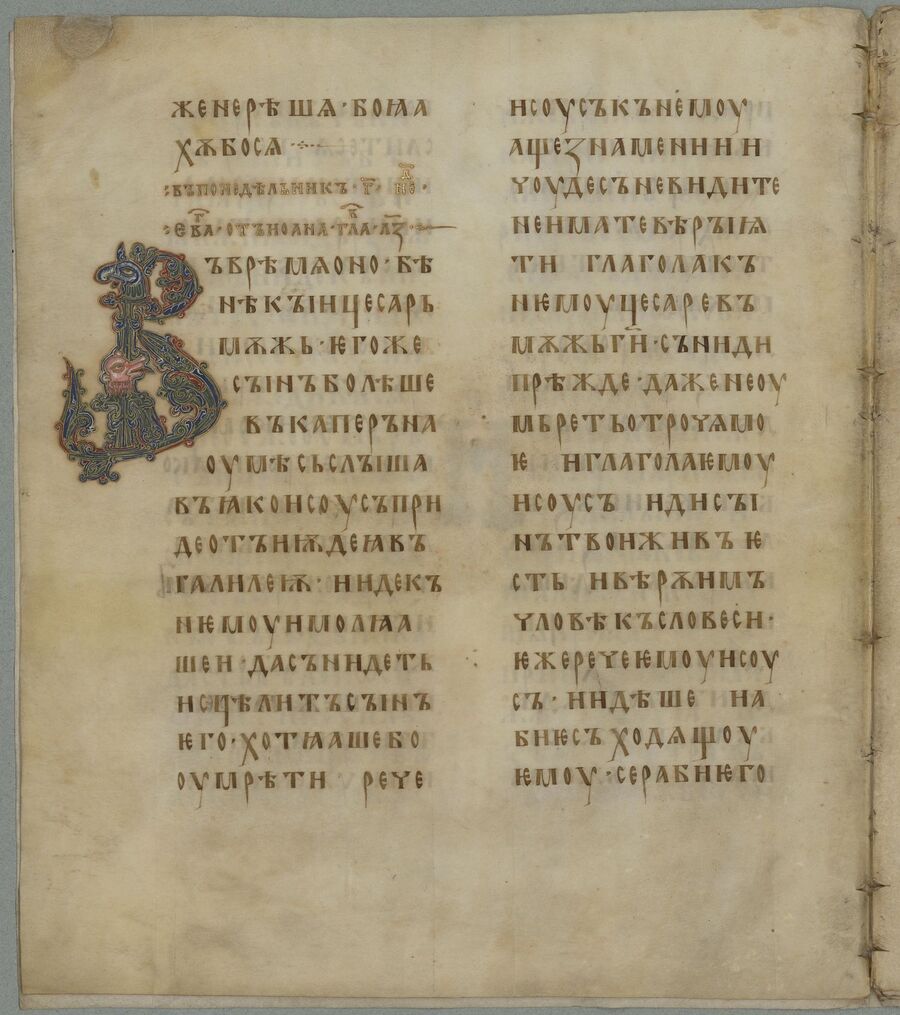 женерѣшѧ·боꙗа
хѫбосѧ
въпонедѣльникъ·г҃·не·
ева·отъиоана·гла·лз
Въврѣмѧоно·бѣ
нѣкъıицесарь
мѫжь·ѥгоже
съıнъболѣше
въкаперъна
оумѣсьслъıша
въꙗкоисоусъпри
деотъиѭдеꙗвъ
галилеѭ·иидекъ
нѥмоуимолꙗа
шеи·дасънидеть
исцѣлитъсъıнъ
ѥго·хотꙗашебо
оумрѣти рече
исоуськънемоу
ащезнамениии
чоудесъневидите
неиматевѣръıѩ
ти глаголакъ
нѥмоуцесаревъ
мѫжьги·съниди
прѣжде·даженеоу
мьретьотрочѧмо
ѥ иглаголаѥмоу
исоусъ идисъı
нътвоиживъѥ
сть ивѣрѫимъ
чловѣкъсловеси·
ѥжеречеѥмоуисоу
съ·иидѣше на
биѥсъходѧщоу
ѥмоу·серабиѥго